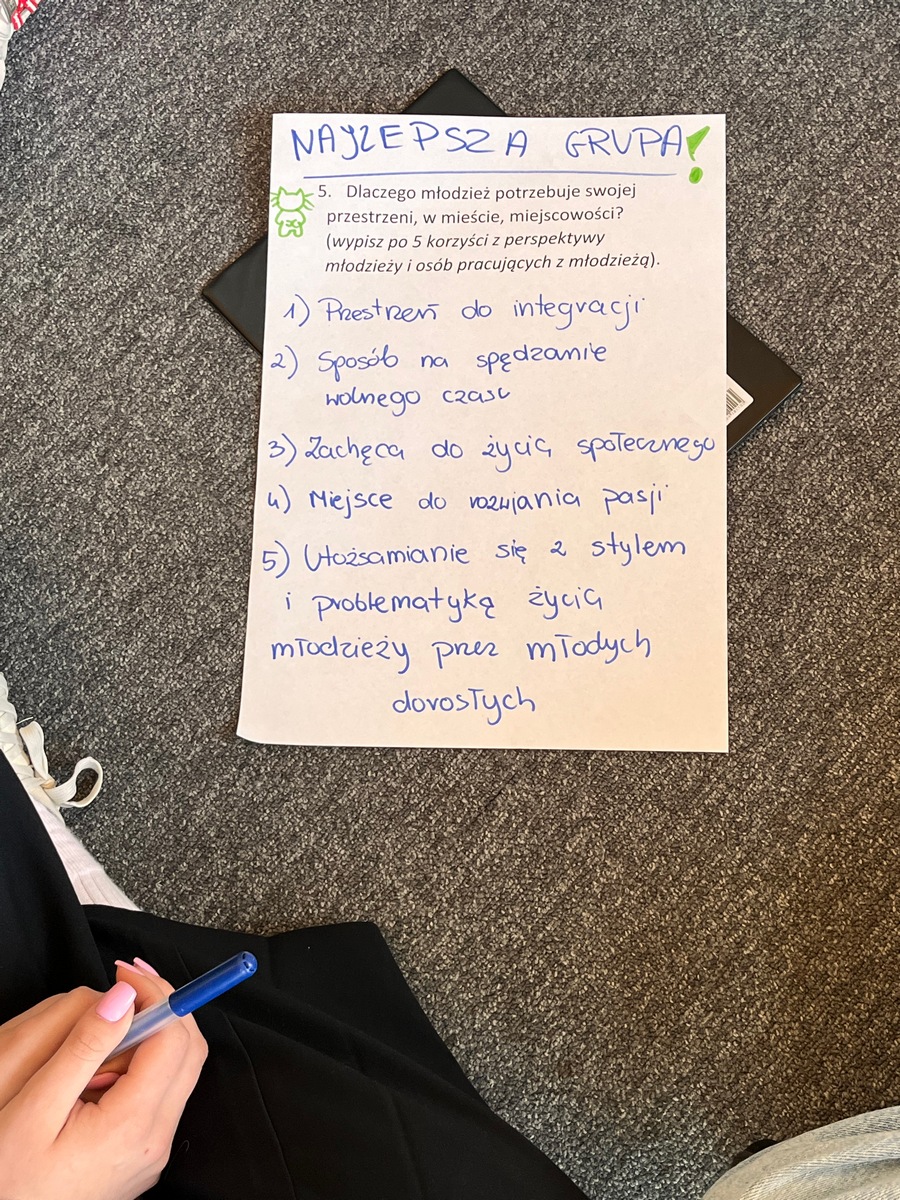 NAJLEPSZA GRUPA!
5. Dlaczego młodzież potrzebuje swojej
przestrzeni, w mieście, miejscowości?
(wypisz po 5 korzyści z perspektywy
młodzieży i osób pracujących z młodzieżą).
1) Przestrzeń do integracji
2) Sposób na spędzanie
wolnego czasu
3) Zachęca do życia społecznego
4) Miejsce do rozwijania pasji
5) Utożsamianie się z stylem
i problematyką życia
młodzieży przez młodych
dorosłych